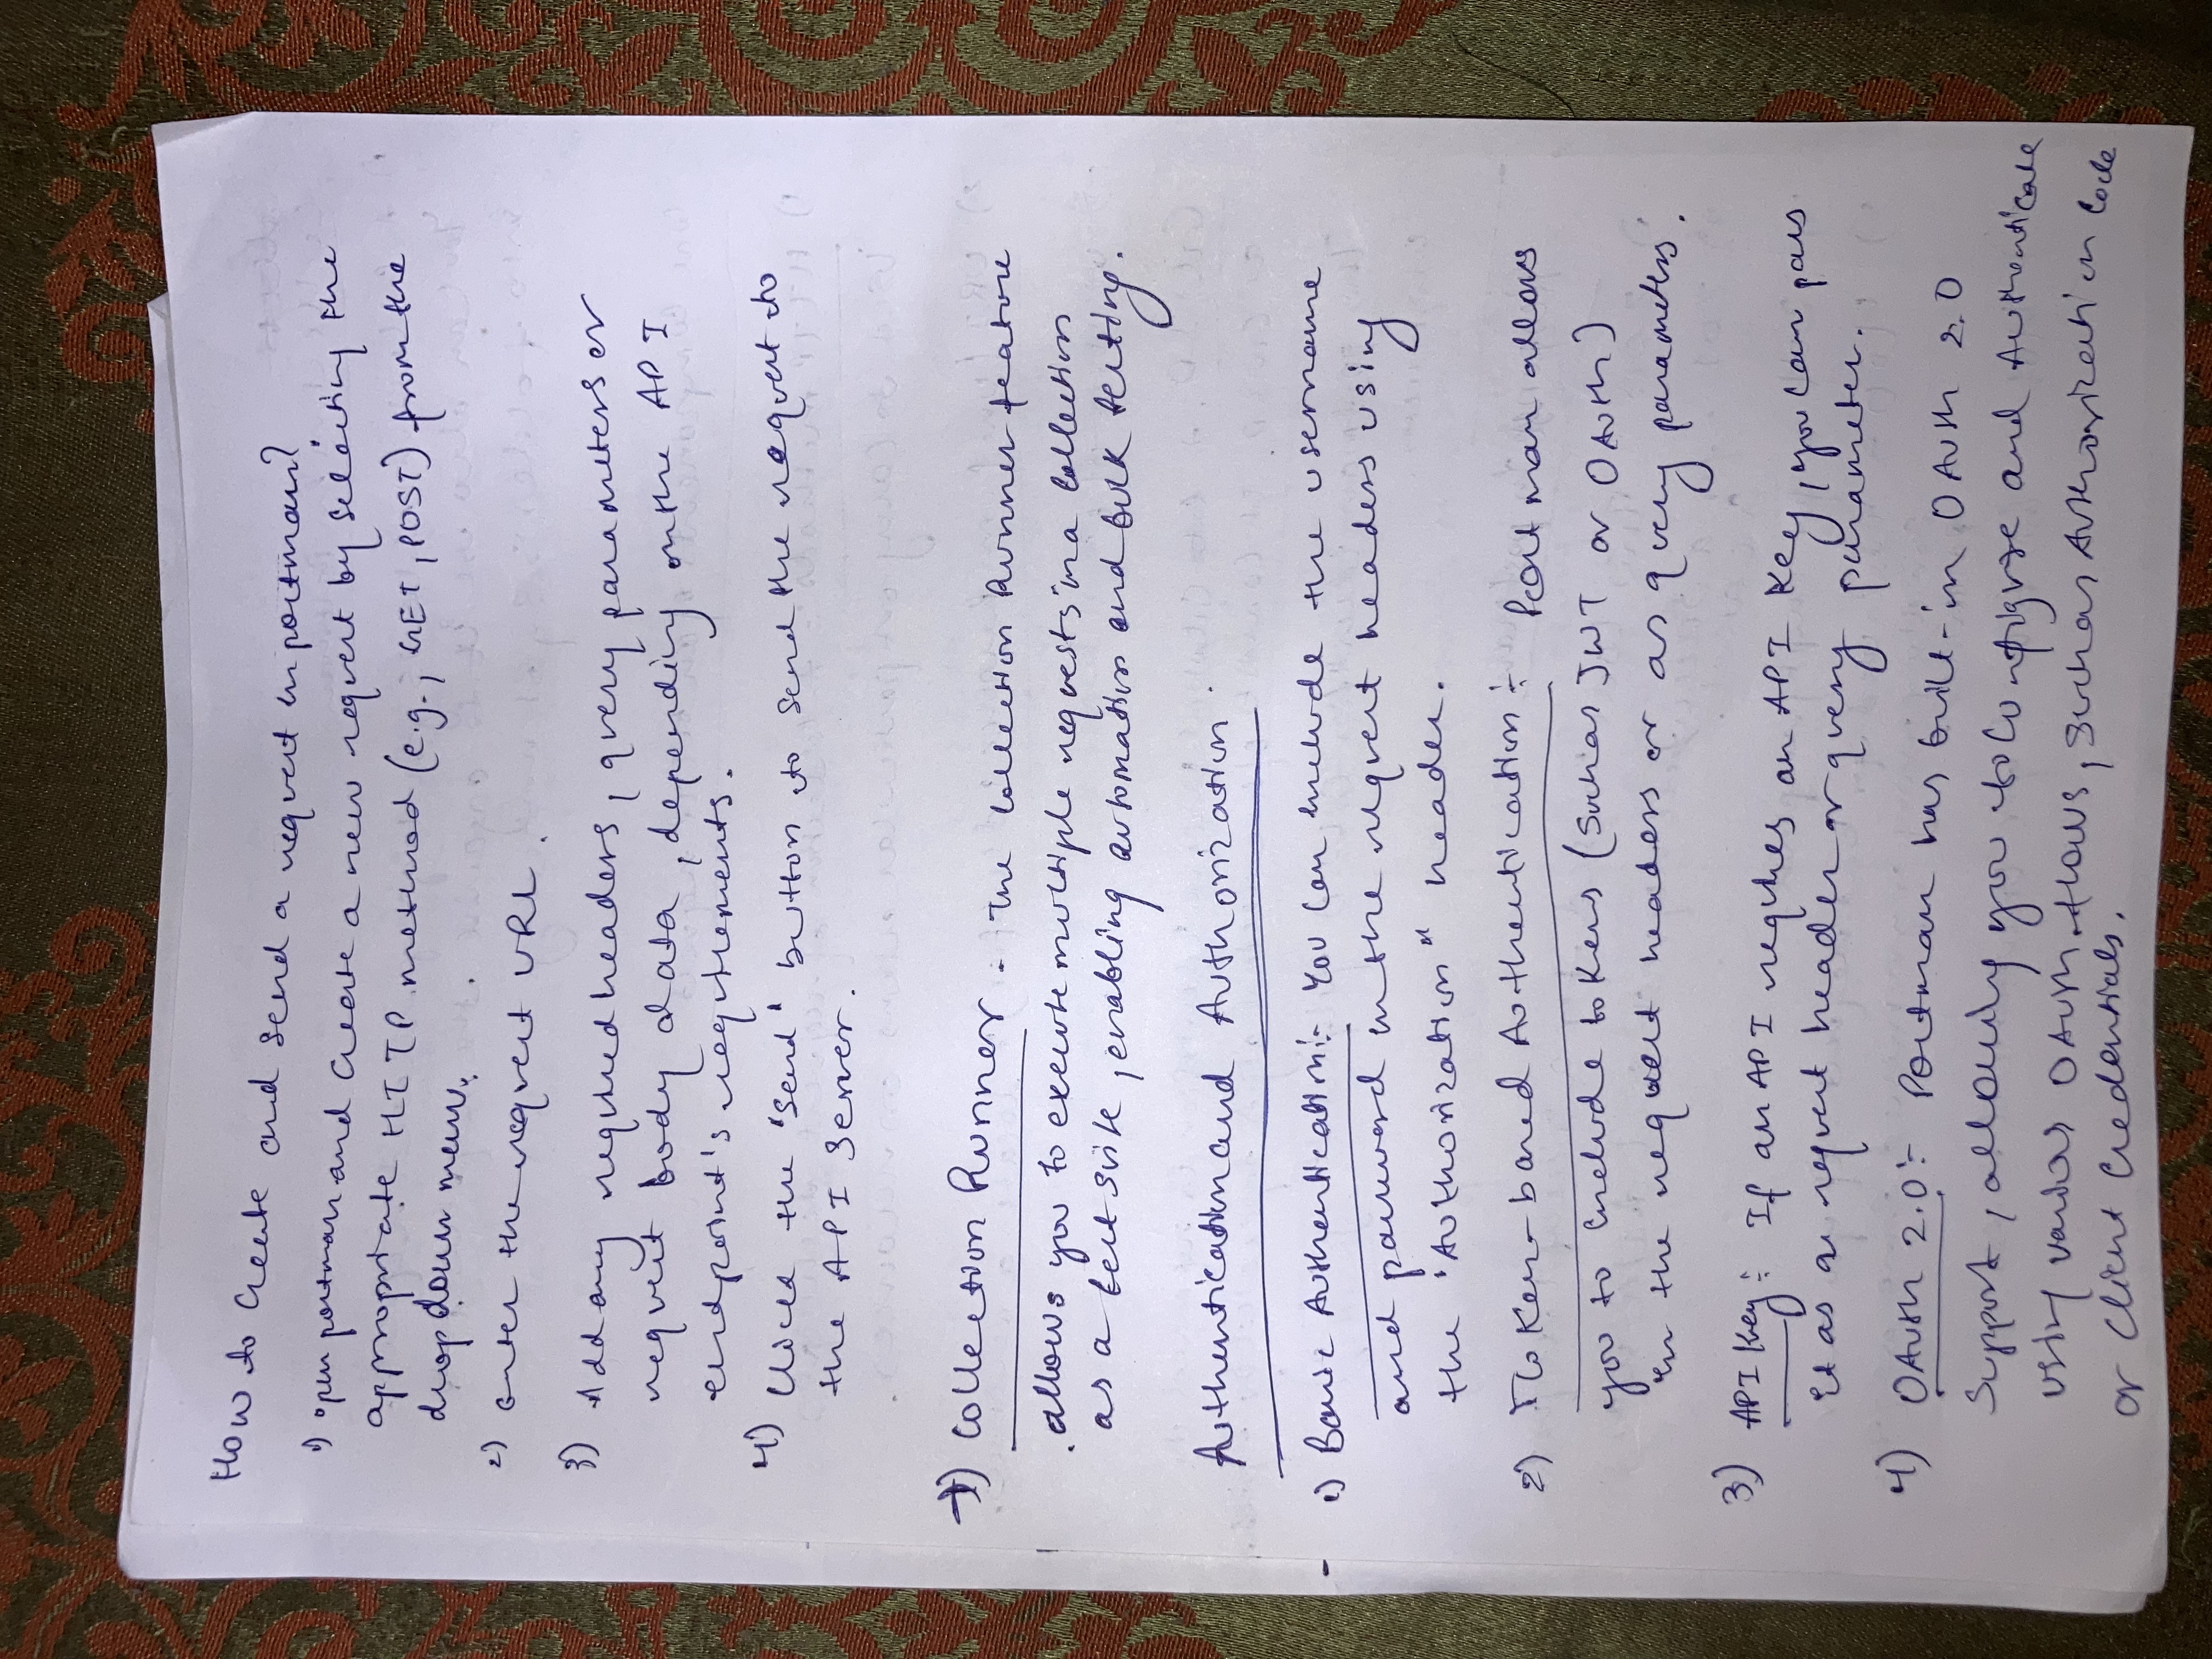 How to Create and Send a request in postman?
1) open postman and Create a new request by Selecting the
appropriate HTTP method (e.g., GET, POST) from the
drop down menu.
2) Enter the request URL.
3) Add any required headers, query parameters or
request body data, depending on the API
endpoint's requirements.
4) Click the "Send" button to Send the request to
the API Server.
1) Collection Runner - The Collection Runner feature
allows you to execute multiple requests in a Collection
as a test suite, enabling automation and bulk testing.
Authentication and Authorization
1) Basic Authentication:- You Can include the username
and password in the request headers using
the "Authorization" header.
2) Token-based Authentication:- Postman allows
you to include tokens (Such as JWT or OAuth)
in the request headers or as query parameters.
3) API Key: If an API requires an API Key, you can pass
it as a request header or query parameter.
4) OAuth 2.0:- Postman has built-in OAuth 2.0
Support, allowing you to Configure and Authenticate
using various OAuth flows, Such as Authorization Code
or Client Credentials.